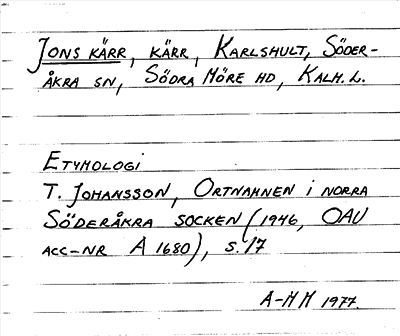 JONS KÄRR, KÄRR, KARLSHULT, SÖDER-
ÅKRA SN, SÖDRA MÖRE HD, KALM. L.
ETYMOLOGI
T. JOHANSSON, ORTNAMNEN I NORRA
SÖDERÅKRA SOCKEN (1946, OAU
ACC-NR A 1680), S. 17
A-MM 1977.